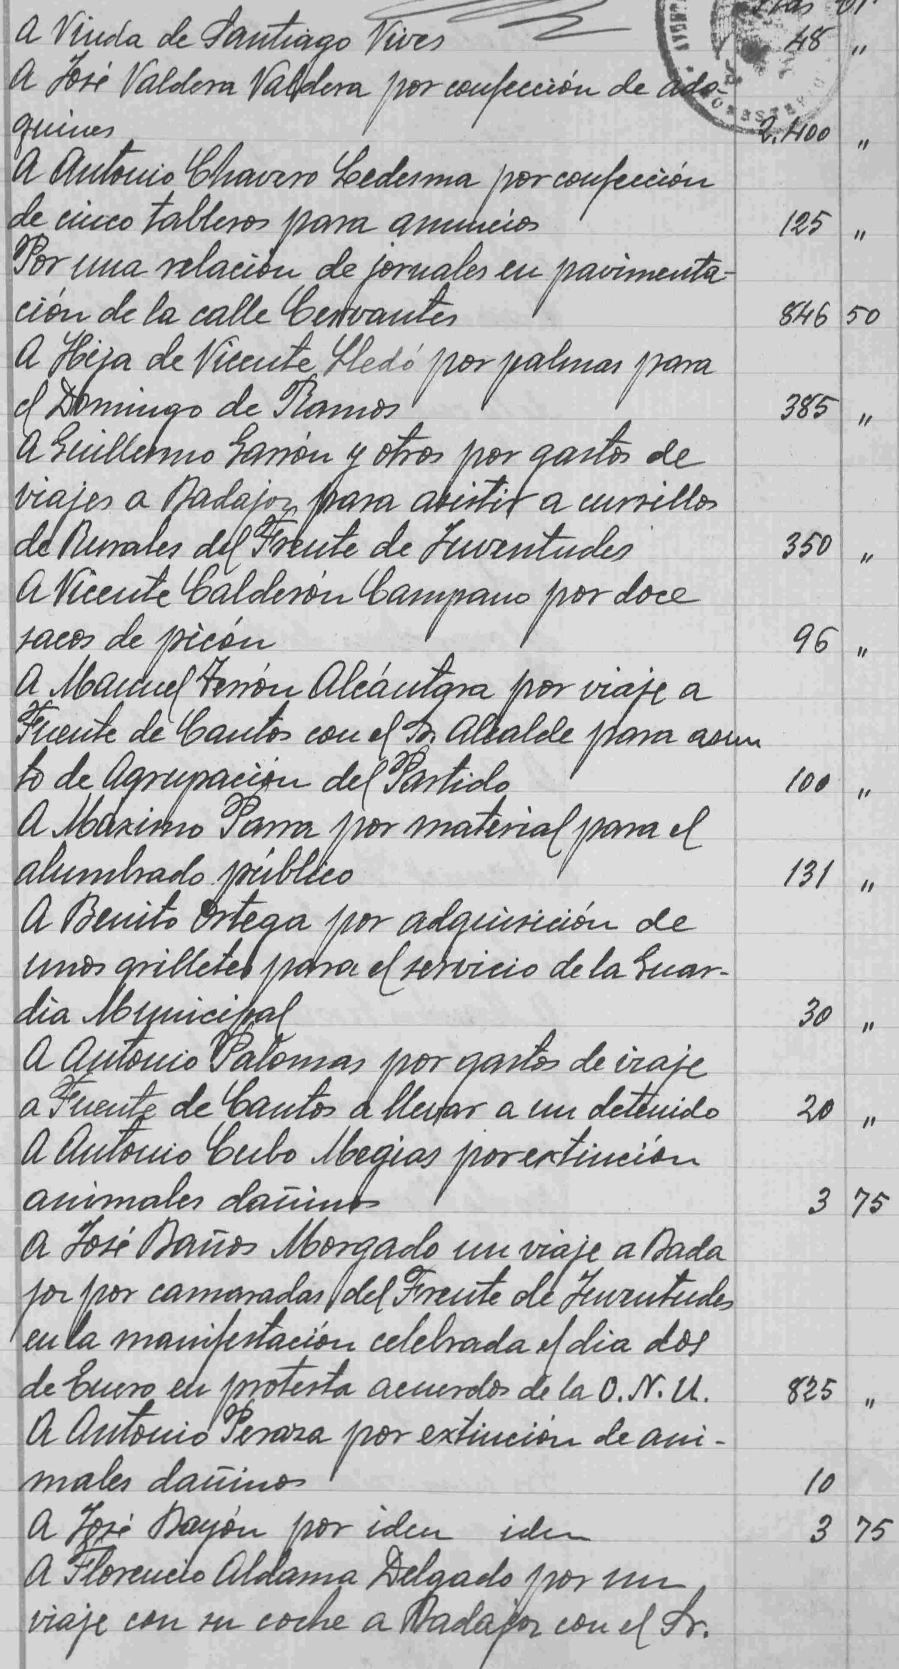 Ptas Ct.
A Viuda de Santiago Vives 48 "
A José Valdera Valdera por confección de ado-
quines 2.400 "
A Antonio Chavero Ledesma por confección
de cinco tableros para anuncios 125 "
Por una relación de jornales en pavimenta-
ción de la calle Cervantes 846 50
A Hija de Vicente Lledó por palmas para
el Domingo de Ramos 385 "
A Guillermo Garrón y otros por gastos de
viajes a Badajoz para asistir a cursillos
de Rurales del Frente de Juventudes 350 "
A Vicente Calderón Campano por doce
sacos de picón 96 "
A Manuel Terrón Alcántara por viaje a
Fuente de Cantos con el Sr. Alcalde para asun
to de Agrupación del Partido 100 "
A Máximo Parra por material para el
alumbrado público 131 "
A Benito Ortega por adquisición de
unos grilletes para el servicio de la Guar-
dia Municipal 30 "
A Antonio Palomas por gastos de viaje
a Fuente de Cantos a llevar a un detenido 20 "
A Antonio Cubo Megias por extinción
animales dañinos 3 75
A José Baños Morgado un viaje a Bada
joz por camaradas del Frente de Juventudes
en la manifestación celebrada el dia dos
de Enero en protesta acuerdos de la O.N.U. 825 "
A Antonio Peraza por extinción de ani-
males dañinos 10
A José Bayón por iden iden 3 75
A Florencio Aldama Delgado por un
viaje con su coche a Badajoz con el Sr.